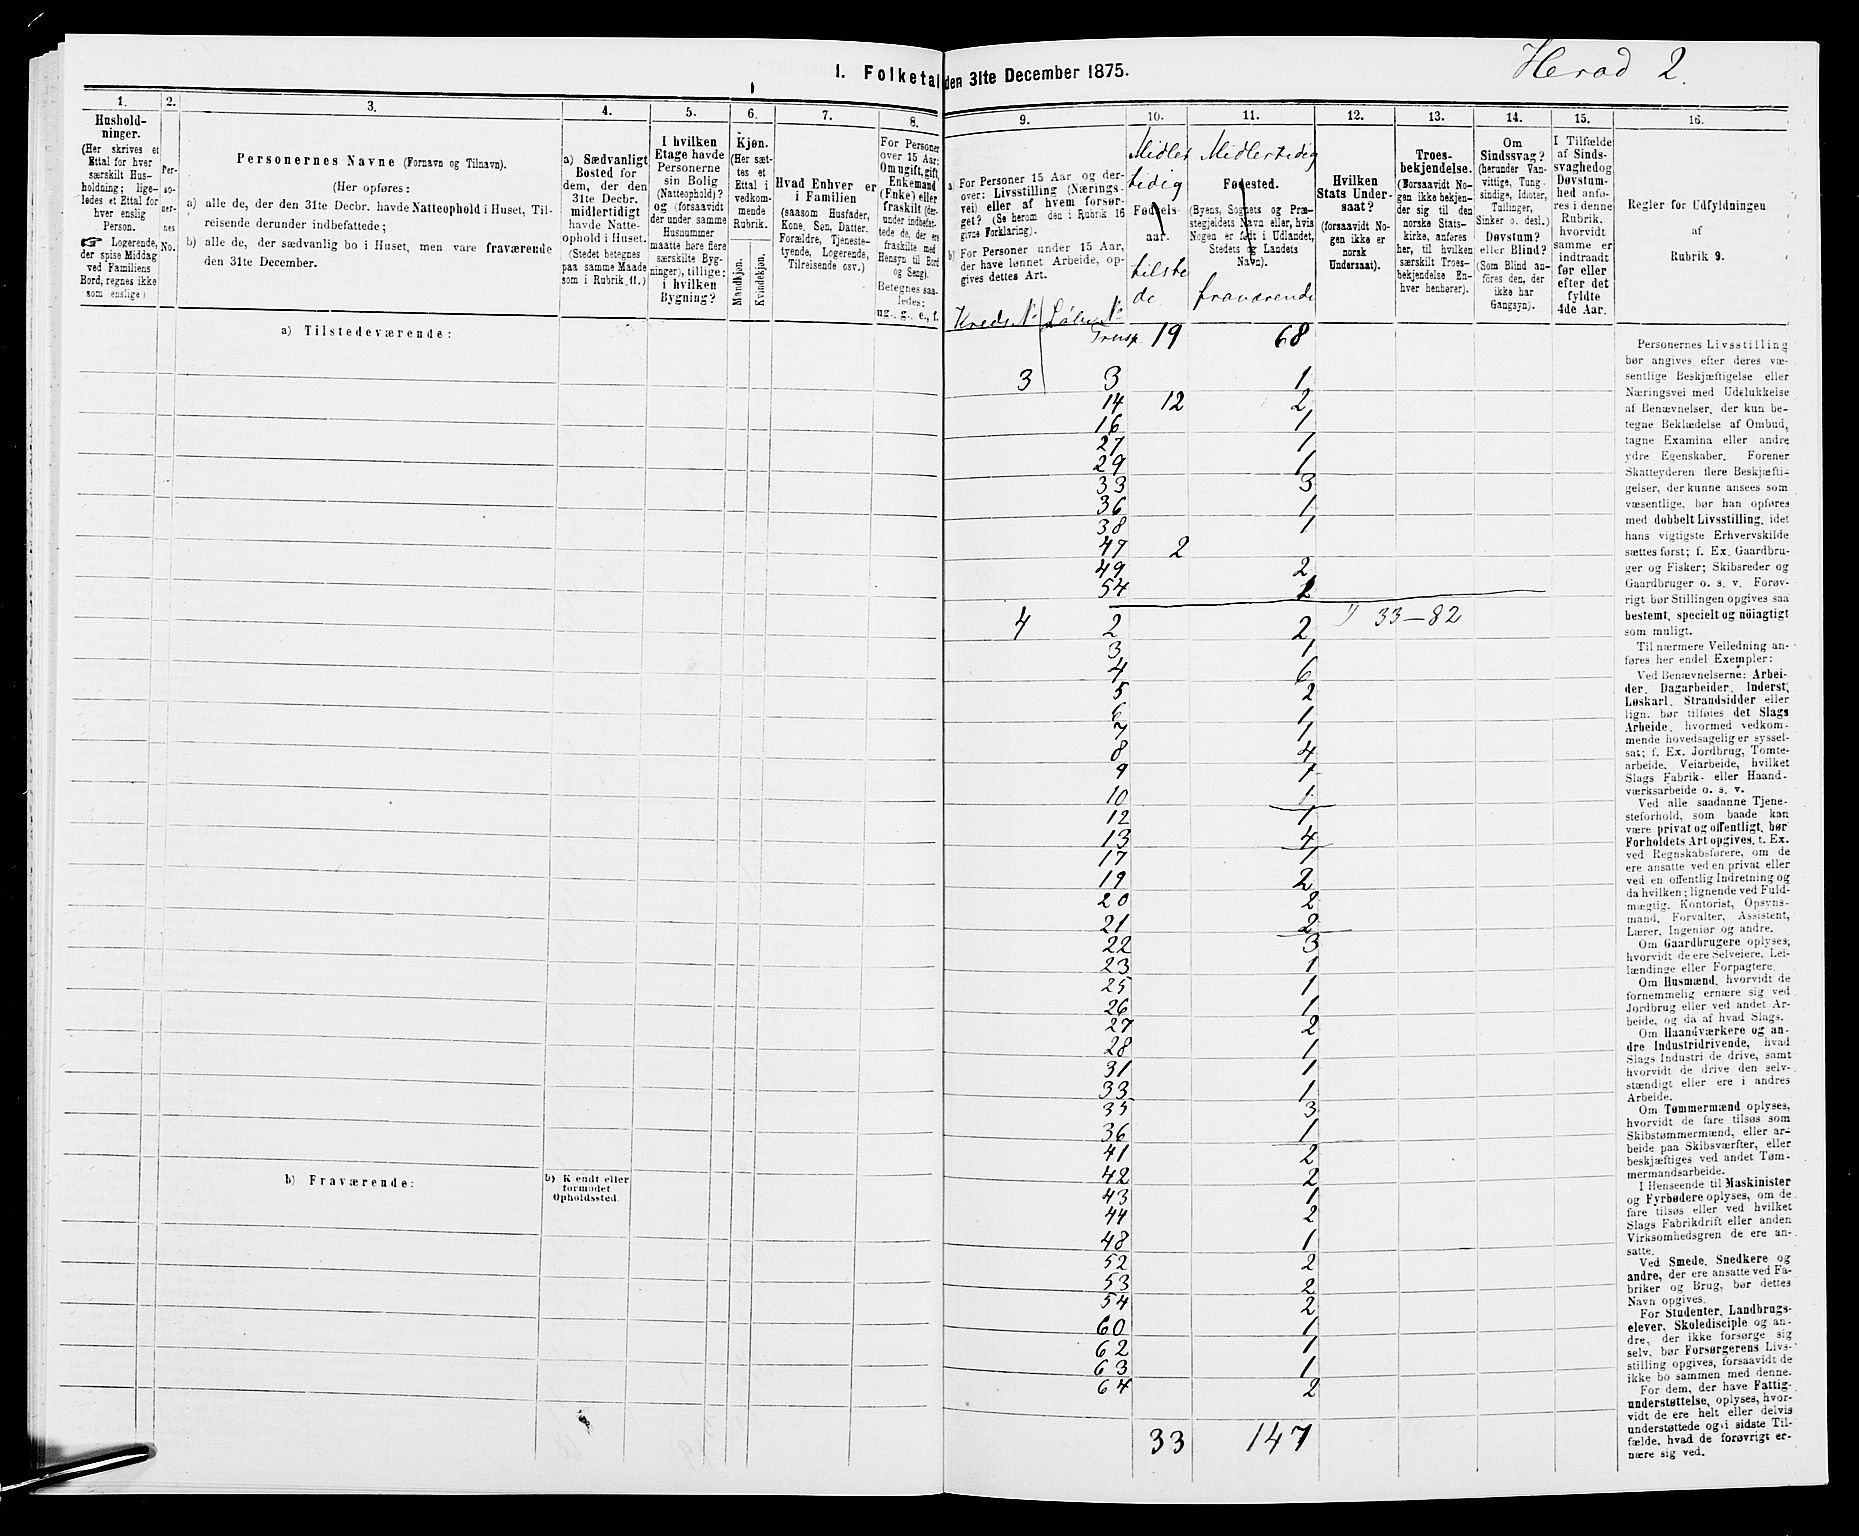 1. Folketal den 31te December 1875.
Herad 2.
1.
Hushold-
ninger.
(Her skrives et
Ettal for hver
særskilt Hus-
holdning; lige-
ledes et Ettal for
hver enslig
Person.
☞ Logerende,
der spise Middag
ved Familiens
Bord, regnes ikke
som enslige)
2.
Per-
so-
ner-
nes
No.
3.
Personernes Navne (Fornavn og Tilnavn).
(Her opføres:
a) alle de, der den 31te Decbr. havde Natteophold i Huset, Til-
reisende derunder indbefattede;
b) alle de, der sædvanlig bo i Huset, men vare fraværende
den 31te December.
4.
a) Sædvanligt
Bosted for
dem, der den
31te Decbr.
midlertidigt
havde Natte-
ophold i Huset.
(Stedet betegnes
paa samme Maade
som i Rubrik 11.)
5.
I hvilken
Etage havde
Personerne
sin Bolig
(Natteophold)?
og (forsaavidt
der under samme
Husnummer
maatte høre flere
særskilte Byg-
ninger), tillige:
i hvilken
Bygning?
6.
Kjøn.
(Her sæt-
tes et
Ettal i
vedkom-
mende
Rubrik.
Mandkjøn.
Kvindekjøn.
7.
Hvad Enhver er
i Familien
(saasom Husfader,
Kone, Søn, Datter,
Forældre, Tjeneste-
tyende, Logerende,
Tilreisende osv.)
8.
For Personer
over 15 Aar:
Om ugift, gift,
Enkemand
(Enke) eller
fraskilt (der-
under indbefat-
tede de, der ere
fraskilte med
Hensyn til Bord
og Seng).
Betegnes saa-
ledes:
ug., g., e., f.
9.
a) For Personer 15 Aar og der-
over: Livsstilling (Nærings-
vei) eller af hvem forsør-
get? (Se herom den i Rubrik 16
givne Forklaring).
b) For Personer under 15 Aar,
der have lønnet Arbeide, op-
gives dettes Art.
Kreds No Løbe No
10.
Midler
tidig
Fødsels-
aar.
tilste
de
11.
Midlertidig
Fødested.
(Byens, Sognets og Præ-
stegjeldets Navn eller, hvis
Nogen er født i Udlandet,
Stedets og Landets
Navn).
fraværende
12.
Hvilken
Stats Under-
saat?
(forsaavidt No-
gen ikke er
norsk
Undersaat).
13.
Troes-
bekjendelse.
(Forsaavidt No-
gen ikke bekjen-
der sig til den
norske Stats-
kirke, anføres
her, til hvilken
særskilt Troes-
bekjendelse En-
hver henhører).
14.
Om
Sindssvag?
(herunder Van-
vittige, Tung-
sindige, Idioter,
Tullinger,
Sinker o. desl.)
Døvstum?
eller Blind?
(Som Blind an-
føres den, der
ikke har
Gangsyn).
15.
I Tilfælde
af Sinds-
svaghed og
Døvstum-
hed anfø-
res i denne
Rubrik,
hvorvidt
samme er
indtraadt
før eller
efter det
fyldte
4de Aar.
16.
Regler for Udfyldningen
af
Rubrik 9.
a) Tilstedeværende:
Transp. 19 68
3 3 1
14 12 2
16 1
27 1
29 1
33 3
36 1
38 1
47 2
49 2
54 2
33—82
4 2 2
3 1
4 6
5 2
6 1
7 1
8 4
9 1
10 1
12 1
13 4
17 1
19 2
20 2
21 2
22 3
23 1
25 1
26 1
27 2
28 1
31 1
33 1
35 3
36 1
41 2
42 2
43 1
44 2
48 1
52 2
53 2
54 2
60 1
62 1
63 1
64 2
33 147
b) Fraværende:
b) Kjendt eller
formodet
Opholdssted.
Personernes Livsstilling
bør angives efter deres væ-
sentlige Beskjæftigelse eller
Næringsvei med Udelukkelse
af Benævnelser, der kun be-
tegne Beklædelse af Ombud,
tagne Examina eller andre
ydre Egenskaber. Forener
Skatteyderen flere Beskjæfti-
gelser, der kunne ansees som
væsentlige, bør han opføres
med dobbelt Livsstilling, idet
hans vigtigste Erhvervskilde
sættes først; f. Ex. Gaardbru-
ger og Fisker; Skibsreder og
Gaardbruger o. s. v. Forøv-
rigt bør Stillingen opgives saa
bestemt, specielt og nöiagtigt
som muligt.
Til nærmere Veiledning an-
føres her endel Exempler:
Ved Benævnelserne: Arbei-
der, Dagarbeider, Inderst,
Løskarl, Strandsidder eller
lign. bør tilføies det Slags
Arbeide, hvormed vedkom-
mende hovedsagelig er syssel-
sat; f. Ex. Jordbrug, Tomte-
arbeide, Veiarbeide, hvilket
Slags Fabrik- eller Haand-
værksarbeide o. s. v.
Ved alle saadanne Tjene-
steforhold, som baade kan
være privat og offentligt, bør
Forholdets Art opgives, t. Ex.
ved Regnskabsførere, om de
ere ansatte ved en privat eller
ved en offentlig Indretning og
da hvilken; lignende ved Fuld-
mægtig, Kontorist, Opsyns-
mand, Forvalter, Assistent,
Lærer, Ingeniør og andre.
Om Gaardbrugere oplyses,
hvorvidt de ere Selveiere, Lei-
lændinge eller Forpagtere.
Om Husmænd, hvorvidt de
fornemmelig ernære sig ved
Jordbrug eller ved andet Ar-
beide, og da af hvad Slags.
Om Haandværkere og an-
dre Industridrivende, hvad
Slags Industri de drive, samt
hvorvidt de drive den selv-
stændigt eller ere i andres
Arbeide.
Om Tømmermænd oplyses,
hvorvidt de fare tilsøs som
Skibstømmermænd, eller ar-
beide paa Skibsværfter, eller
beskjæftiges ved andet Tøm-
mermandsarbeide.
I Henseende til Maskinister
og Fyrbødere oplyses, om de
fare tilsøs eller ved hvilket
Slags Fabrikdrift eller anden
Virksomhedsgren de ere an-
satte.
Ved Smede, Snedkere og
andre, der ere ansatte ved Fa-
briker og Brug, bør dettes
Navn opgives.
For Studenter, Landbrugs-
elever, Skoledisciple og an-
dre, der ikke forsørge sig
selv, bør Forsørgerens Livs-
stilling opgives, forsaavidt de
ikke bo sammen med denne.
For dem, der have Fattig-
understøttelse, oplyses, hvor-
vidt de ere helt eller delvis
understøttede og i sidste Til-
fælde, hvad de forøvrigt er-
nære sig ved.